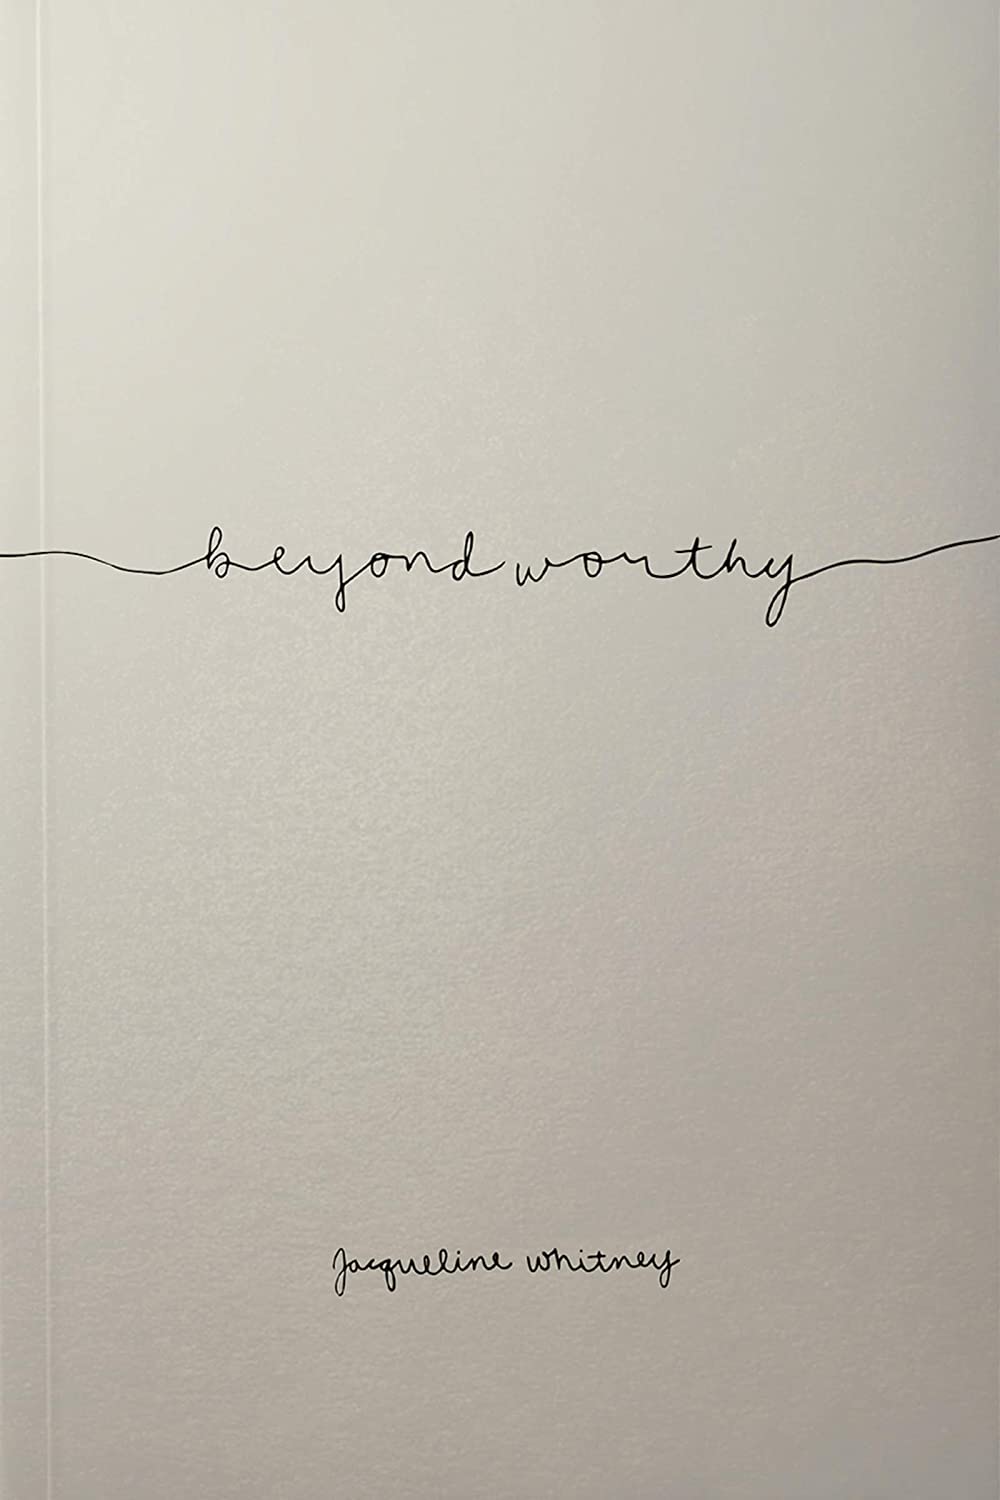 beyond worthy
Jacqueline whitney